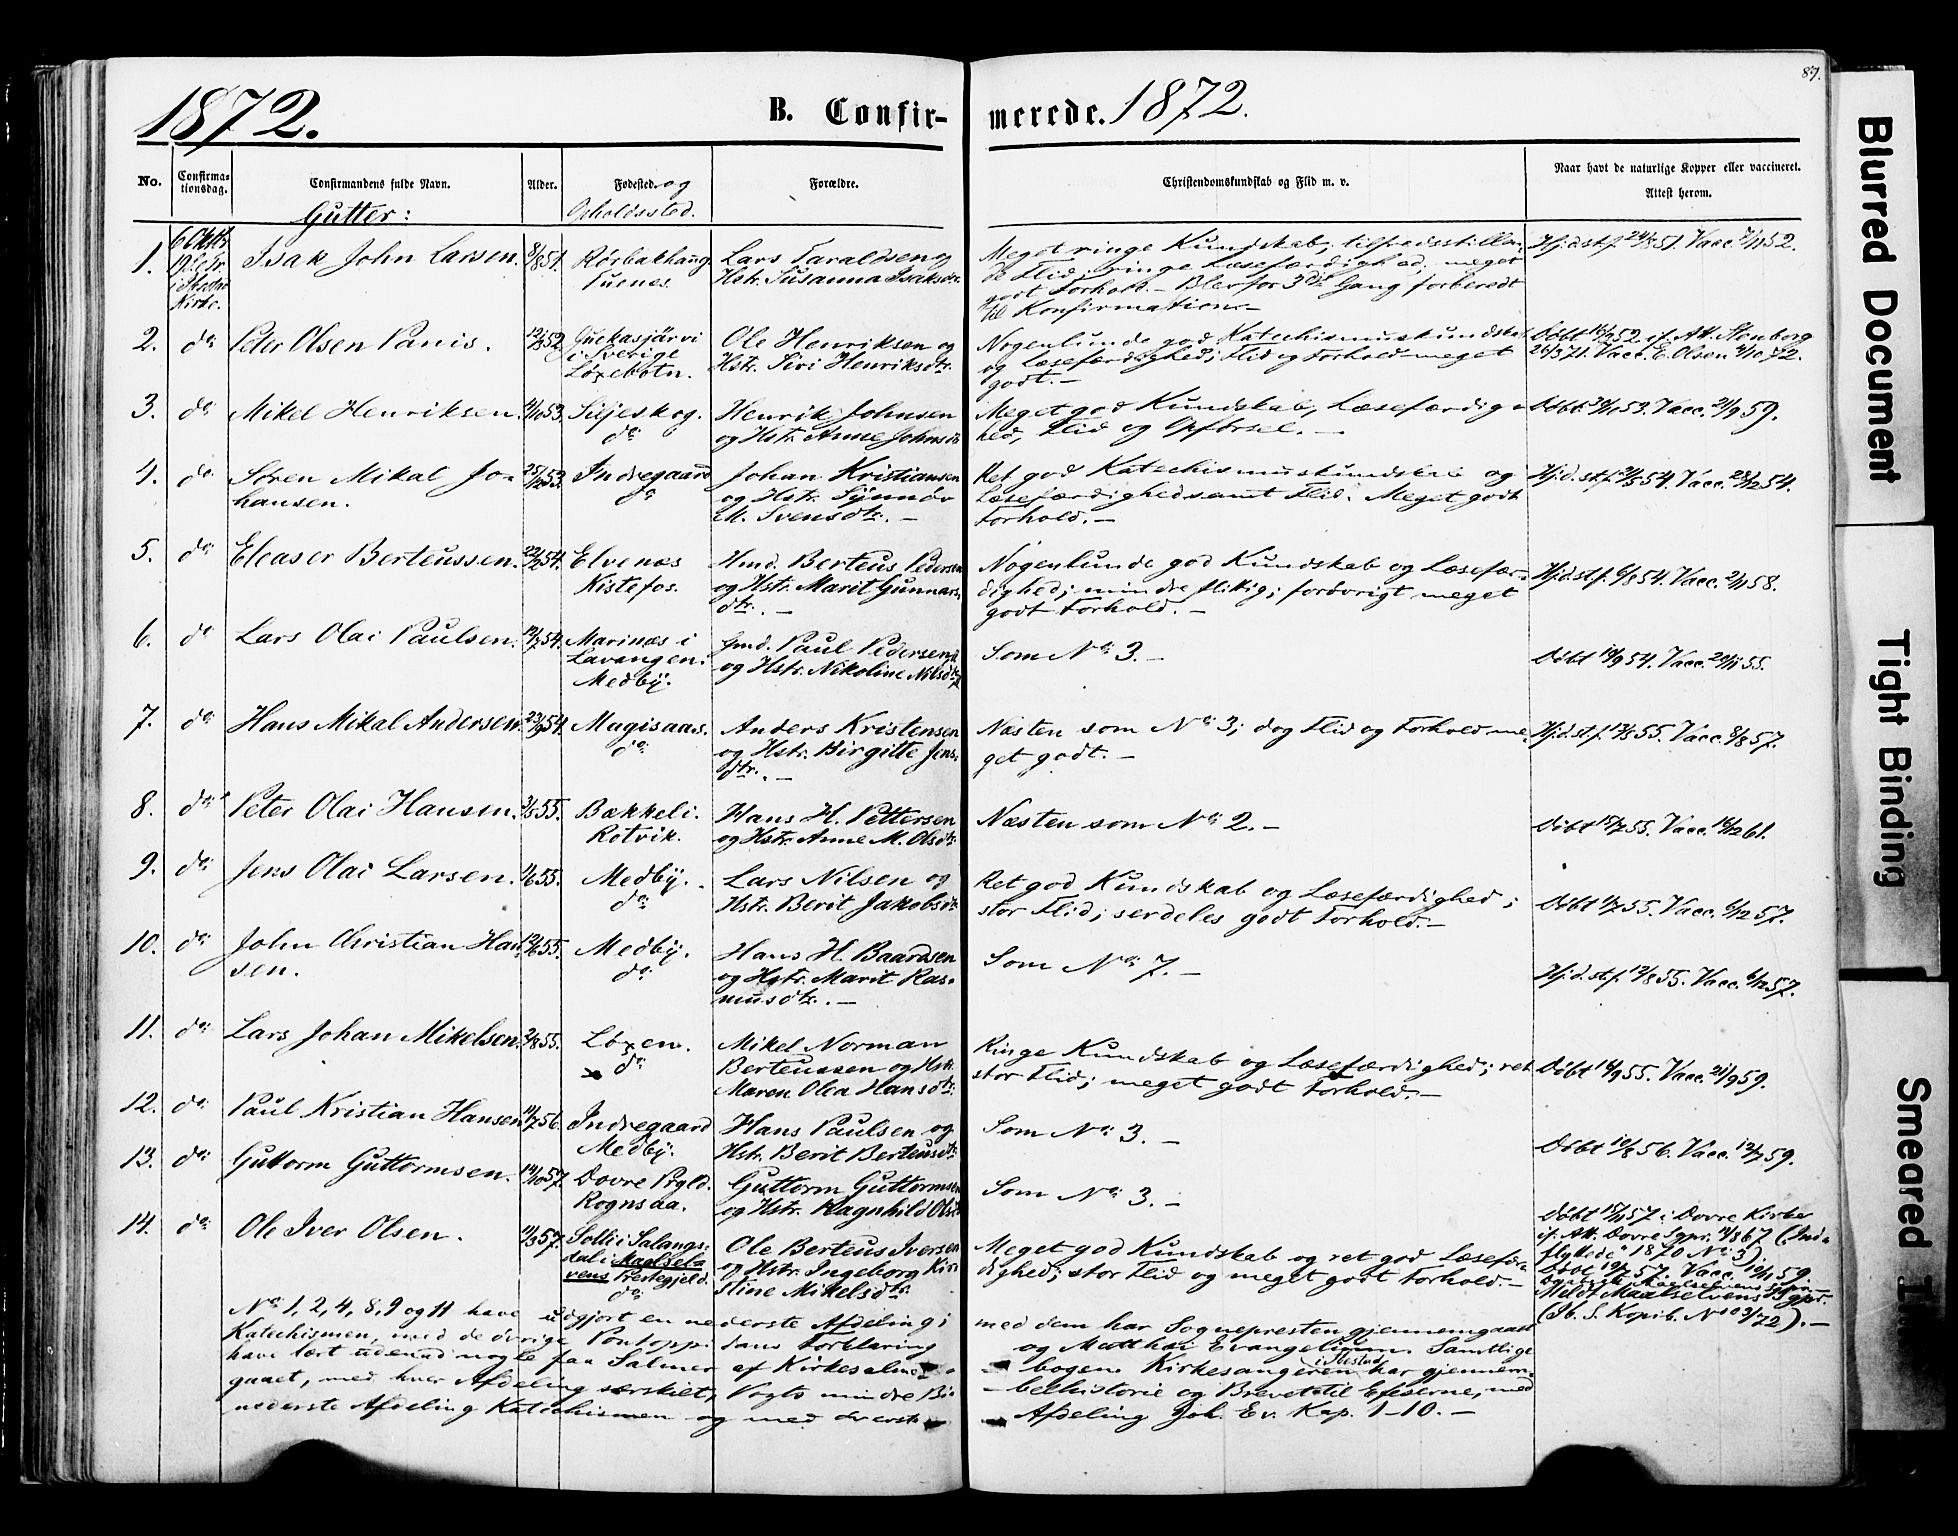 87.
1872.
B. Confir-
merede. 1872.
No.
Confirma-
tionsdag.
Confirmandens fulde Navn.
Alder.
Fødested. og
Opholdssted.
Forældre.
Christendomskundskab og Flid m. v.
Naar havt de naturlige Kopper eller vaccineret.
Attest herom.
Gutter:
1.
6 Oktbr.
Kirke.
Isak John Larsen.
8/8 51.
Lars Taraldsen og
Hstr. Susanna Isaksdr.
Meget ringe Kundskab, tilfredsstillen-
de Flid, ringe Læsefærdighed; meget
godt Forhold. – Blev for 3die Gang forberedt
til Konfirmation. –
Hjd. stf. 24/8 51. Vacc. 7/11 52.
2.
do
Peter Olsen Panis.
12/8 52.
Juckasjärvi
i Sverige
Løxebotn.
Ole Henriksen og
Hstr. Siri Henriksdtr.
Nogenlunde god Katechismuskundskab
og Læsefærdighed; Flid og Forhold meget
godt. –
Døbt 16/9 52 if. Att. Stenborg
26/3 71. Vacc. E. Olsen 4/10 72.
3.
do
Mikel Henriksen.
4/10 53.
Siljeskog.
do
Henrik Johnsen
og Hstr. Anne Johnsdr.
Meget god Kundskab, Læsefærdig-
hed, Flid og Opførsel. –
Døbt 30/10 53. Vacc. 21/9 59.
4.
do
Søren Mikal Jo-
hansen.
25/12 53.
Indregaard
do
Johan Kristiansen
og Hstr. Synnøv
M. Svensdtr. –
Ret god Katechismuskundskab og
Læsefærdighed samt Flid. Meget godt
Forhold. –
Hjd. stf. 21/5 54. Vacc. 28/12 54.
5.
do
Eleaser Berteussen.
22/2 54.
Elvenæs
Kistefos.
Hmd. Berteus Pedersen
og Hstr. Marit Gunnars-
dtr. –
Nogenlunde god Kundskab og Læsefær-
dighed; mindre flittig; forøvrigt meget
godt Forhold. –
Hjd. stf. 6/8 54. Vacc. 2/11 58.
6.
do
Lars Olai Paulsen.
19/7 54.
Marinæs i
Lavangen.
Medby.
Gmd. Paul Pedersen
og Hstr. Nikoline Nilsdtr.
Som No 3. –
Døbt 10/9 54. Vacc. 20/11 55.
7.
do
Hans Mikal Andersen.
23/9 54.
Magisaas.
do
Anders Kristensen
og Hstr. Birgitte Jens-
dtr. –
Næsten som No 3; dog Flid og Forhold me-
get godt. –
Hjd. stf. 12/8 55. Vacc. 8/8 57.
8.
do
Peter Olai Hansen.
3/5 55.
Bækkeli.
Rotvik.
Hans H. Pettersen
og Hstr. Anne M. Olsdtr.
Næsten som No 2. –
Døbt 15/7 55. Vacc. 16/12 61.
9.
do
Jens Olai Larsen.
1/6 55.
Medby.
do
Lars Nilsen og
Hstr. Berit Jakobsdtr.
Ret god Kundskab og Læsefærdighed;
stor Flid; særdeles godt Forhold. –
Døbt 1/7 55. Vacc. 6/12 57.
10.
do
John Christian Han-
sen.
12/6 55.
Medby.
do
Hans H. Baardsen
og Hstr. Marit Ras-
musdtr. –
Som No 7. –
Hjd. stf. 12/8 55. Vacc. 6/12 57.
11.
do
Lars Johan Mikelsen.
2/8 55.
Løxen.
do
Mikel Norman
Berteussen og Hstr.
Maren Olea Hansdtr.
Ringe Kundskab og Læsefærdighed; ret
stor Flid; meget godt Forhold. –
Døbt 16/9 55. Vacc. 21/9 59.
12.
do
Paul Kristian Hansen
11/7 56.
Indregaard
Medby.
Hans Paulsen og
Hstr. Berit Berteusdtr.
Som No 3. –
Døbt 10/8 56. Vacc. 12/7 59.
13.
do
Guttorm Guttormsen.
14/10 57.
Dovre Prgld.
Rognsaa.
Guttorm Guttormsen
og Hstr. Ragnhild Olsdtr.
Som No 3. –
Døbt 15/11 57 i Dovre Kirke
if. Att. Dovre Sgpr. 14/8 67 (Ind-
flyttede 1870 No 3).
14.
do
Ole Iver Olsen.
11/3 57.
Solli i Salangs-
dal i Maalsel-
vens Prestegjeld.
do
Ole Berteus Iversen
og Hstr. Ingeborg Kir-
stine Mikelsdtr.
Meget god Kundskab og ret god Læsefær-
dighed; stor Flid og meget godt Forhold. –
Døbt 19/7 57. Vacc. 10/11 59
Meldt Maalselvens Sgpr.
(Jb. S. Kopib. No 103/72). –
No 1, 2, 4, 8, 9 og 11 have udgjort en nederste Afdeling i
Katechismen, med de øvrige Pontoppidans Forklaring
have lært udenad nogle faa Salmer af Kirkesalme-
gaaet, med hver Afdeling særskilt, Vogts mindre Bi-
nederste Afdeling Katechismen og med øverste
med dem har Sognepresten gjennemgaaet
og Matthæi Evangelium. Samtlige
bogen. Kirkesangeren i Ibestad har gjennem-
belhistorie og Brevet til Efeserne, med
Afdeling Joh. Ev. Kap. 1–10. –
Blurred Document
Tight Binding
Smeared